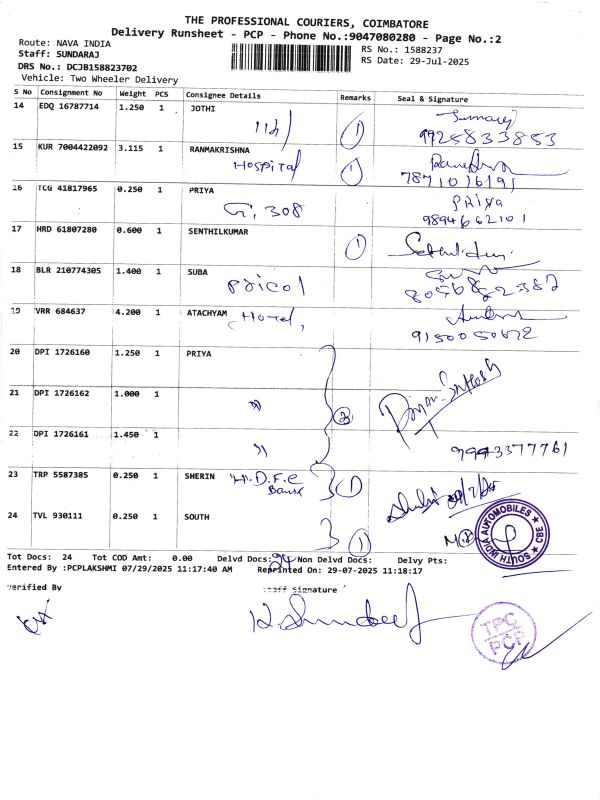 THE PROFESSIONAL COURIERS, COIMBATORE
Delivery Runsheet - PCP - Phone No.:9047080280 - Page No.:2
Route: NAVA INDIA
Staff: SUNDARAJ
DRS No.: DCJB158823702
Vehicle: Two Wheeler Delivery
RS No.: 1588237
RS Date: 29-Jul-2025
S No Consignment No Weight PCS Consignee Details Remarks Seal & Signature
14 EDQ 16787714 1.250 1 JOTHI
1 9925833853
15 KUR 7004422092 3.115 1 RANMAKRISHNA
Hospital 1 7871016191
16 TCG 41817965 0.250 1 PRIYA PRIYA
G. 308 9894662101
17 HRD 61807280 0.600 1 SENTHILKUMAR
1
18 BLR 210774305 1.400 1 SUBA
Pricol 8056822382
19 VRR 684637 4.200 1 ATACHYAM
Hotel, 9150050672
20 DPI 1726160 1.250 1 PRIYA
21 DPI 1726162 1.000 1
" 3
22 DPI 1726161 1.450 1
" 9943377761
23 TRP 5587385 0.250 1 SHERIN H.D.F.C
Bank 1
24 TVL 930111 0.250 1 SOUTH
1
SOUTH INDIA AUTOMOBILES CBE
Tot Docs: 24 Tot COD Amt: 0.00 Delvd Docs: 24 Non Delvd Docs: Delvy Pts:
Entered By :PCPLAKSHMI 07/29/2025 11:17:40 AM Reprinted On: 29-07-2025 11:18:17
Verified By Staff Signature
TPC
PCP